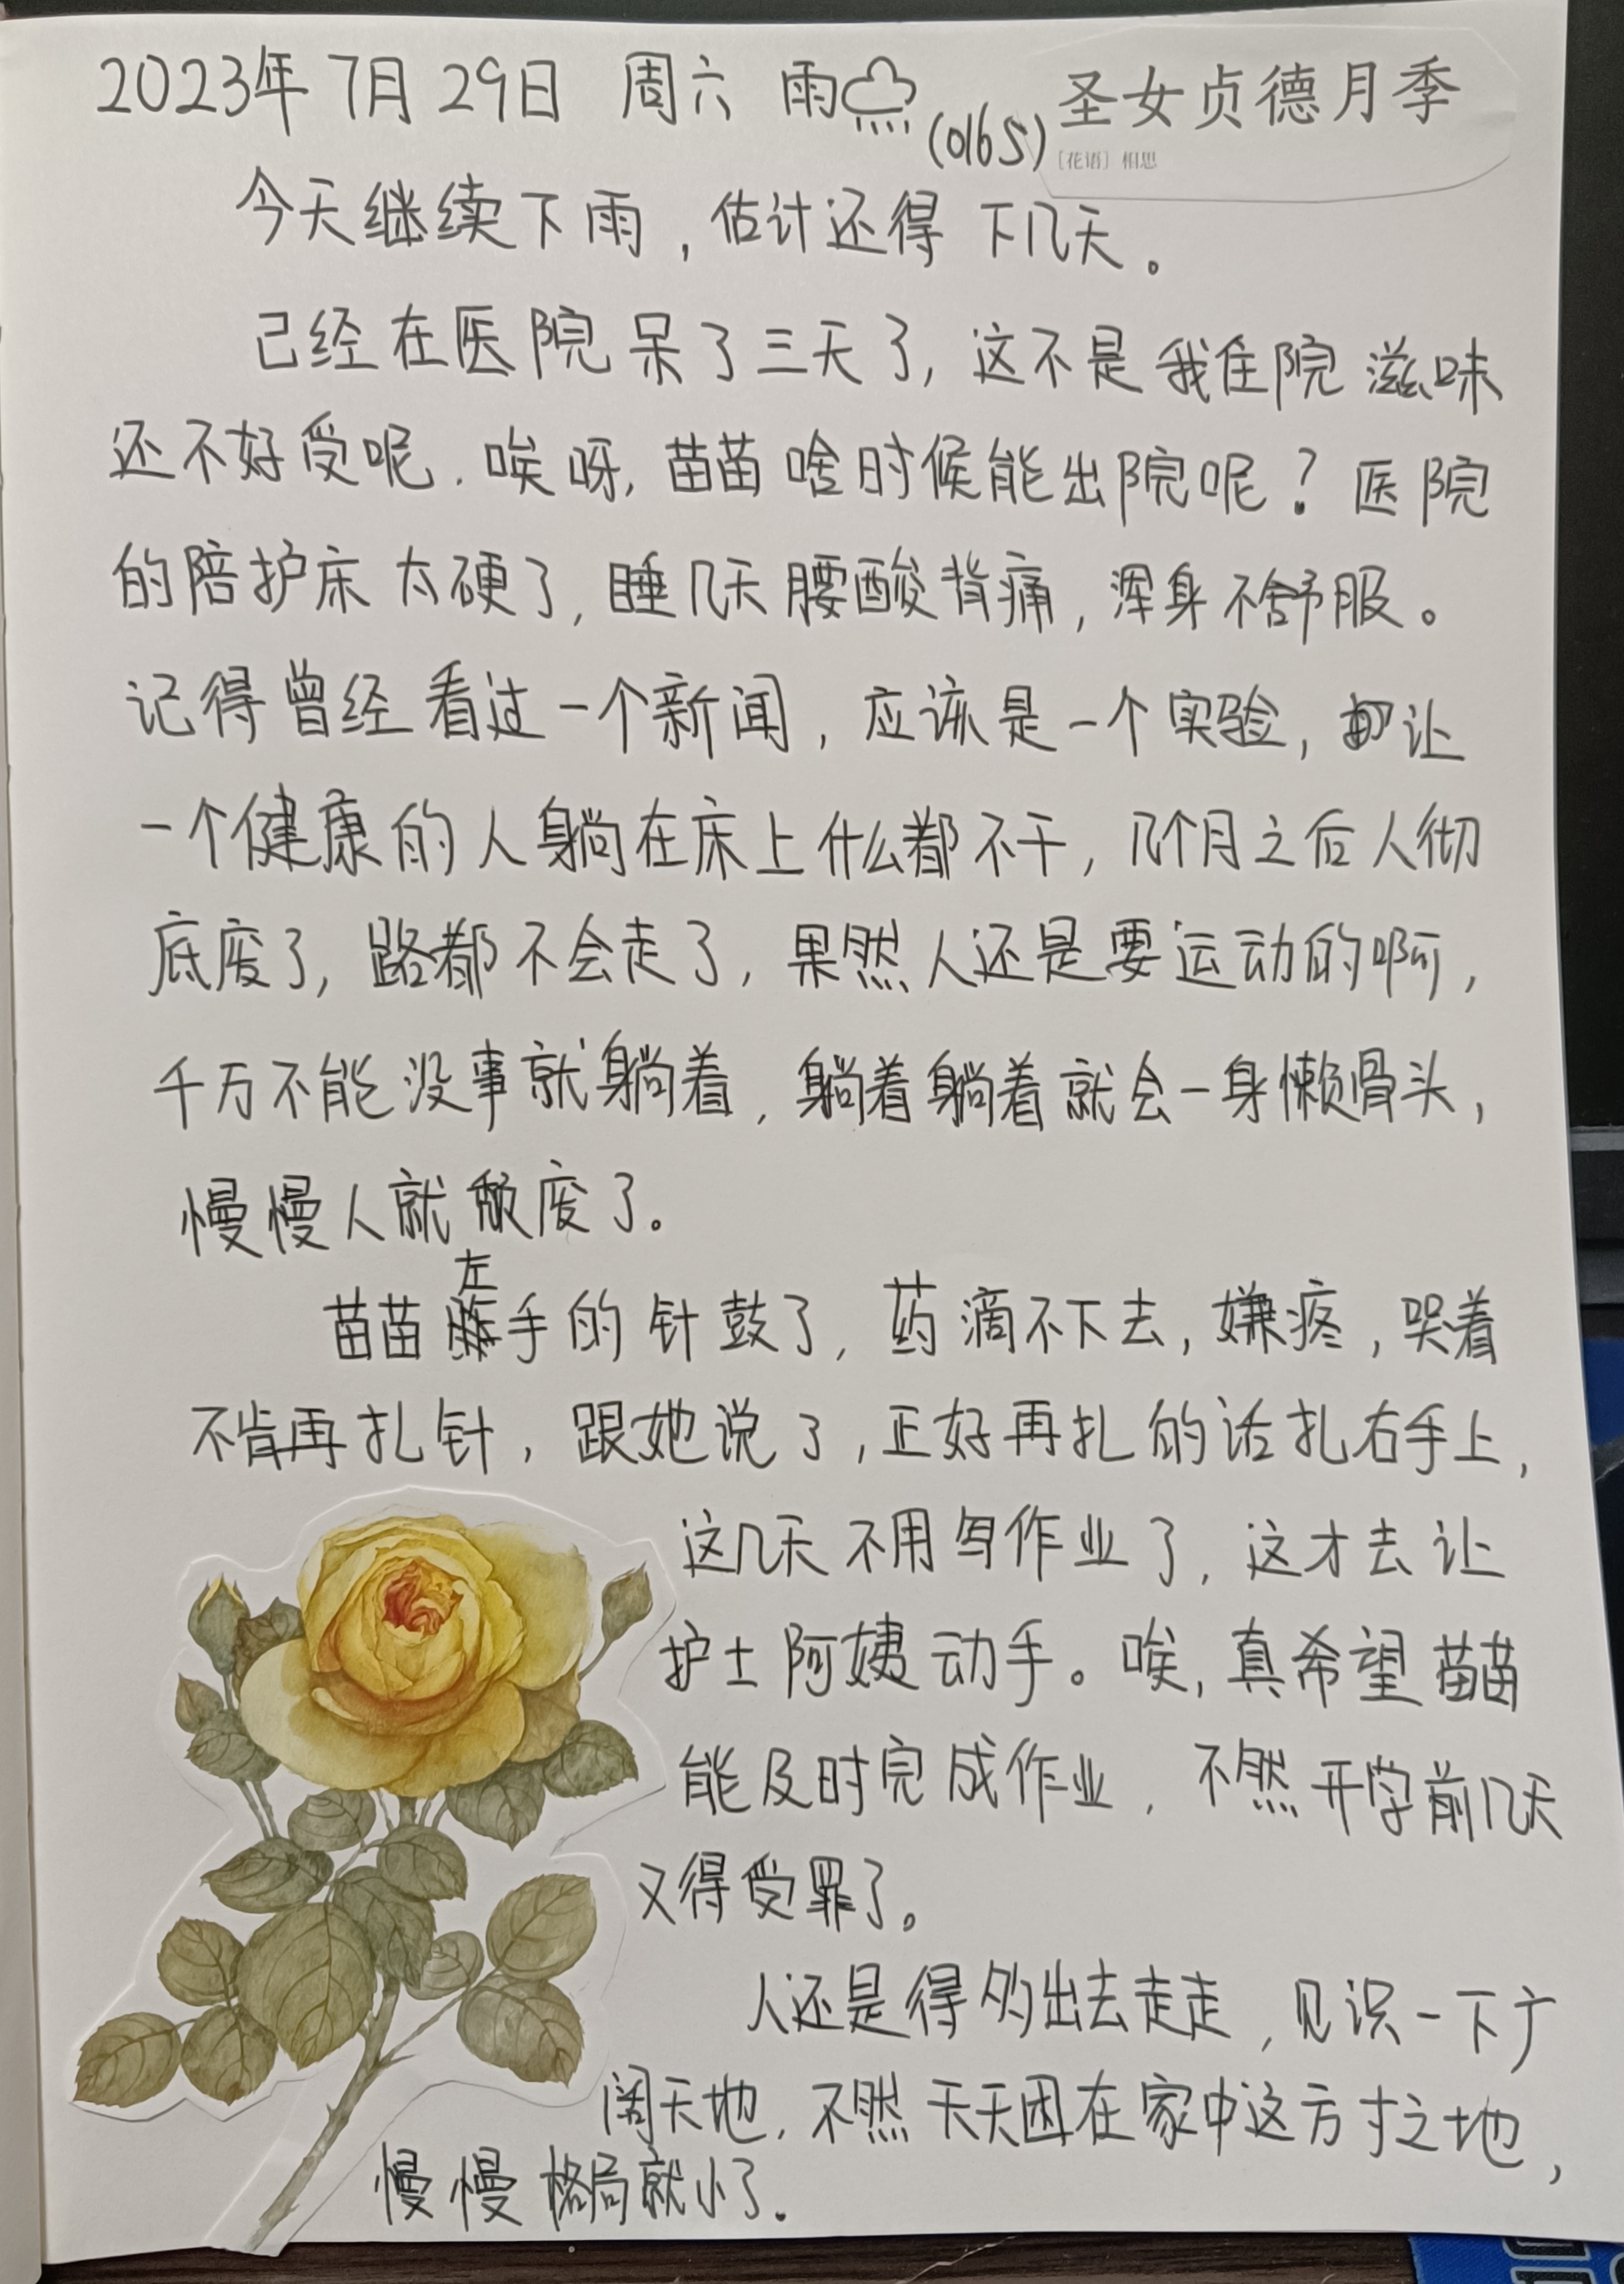 2023年7月29日 周六 雨 (0165) 圣女贞德月季
[花语] 相思
今天继续下雨，估计还得下几天。
已经在医院呆了三天了，这不是我住院滋味
还不好受呢．唉呀，苗苗啥时候能出院呢？医院
的陪护床太硬了，睡几天腰酸背痛，浑身不舒服。
记得曾经看过一个新闻，应该是一个实验，让
一个健康的人躺在床上什么都不干，几个月之后人彻
底废了，路都不会走了，果然人还是要运动的啊，
千万不能没事就躺着，躺着躺着就会一身懒骨头，
慢慢人就颓废了。
苗苗左手的针鼓了，药滴不下去，嫌疼，哭着
不肯再扎针，跟她说了，正好再扎的话扎右手上，
这几天不用写作业了，这才去让
护士阿姨动手。唉，真希望苗苗
能及时完成作业，不然开学前几天
又得受罪了。
人还是得多出去走走，见识一下广
阔天地，不然天天困在家中这方寸之地，
慢慢格局就小了．